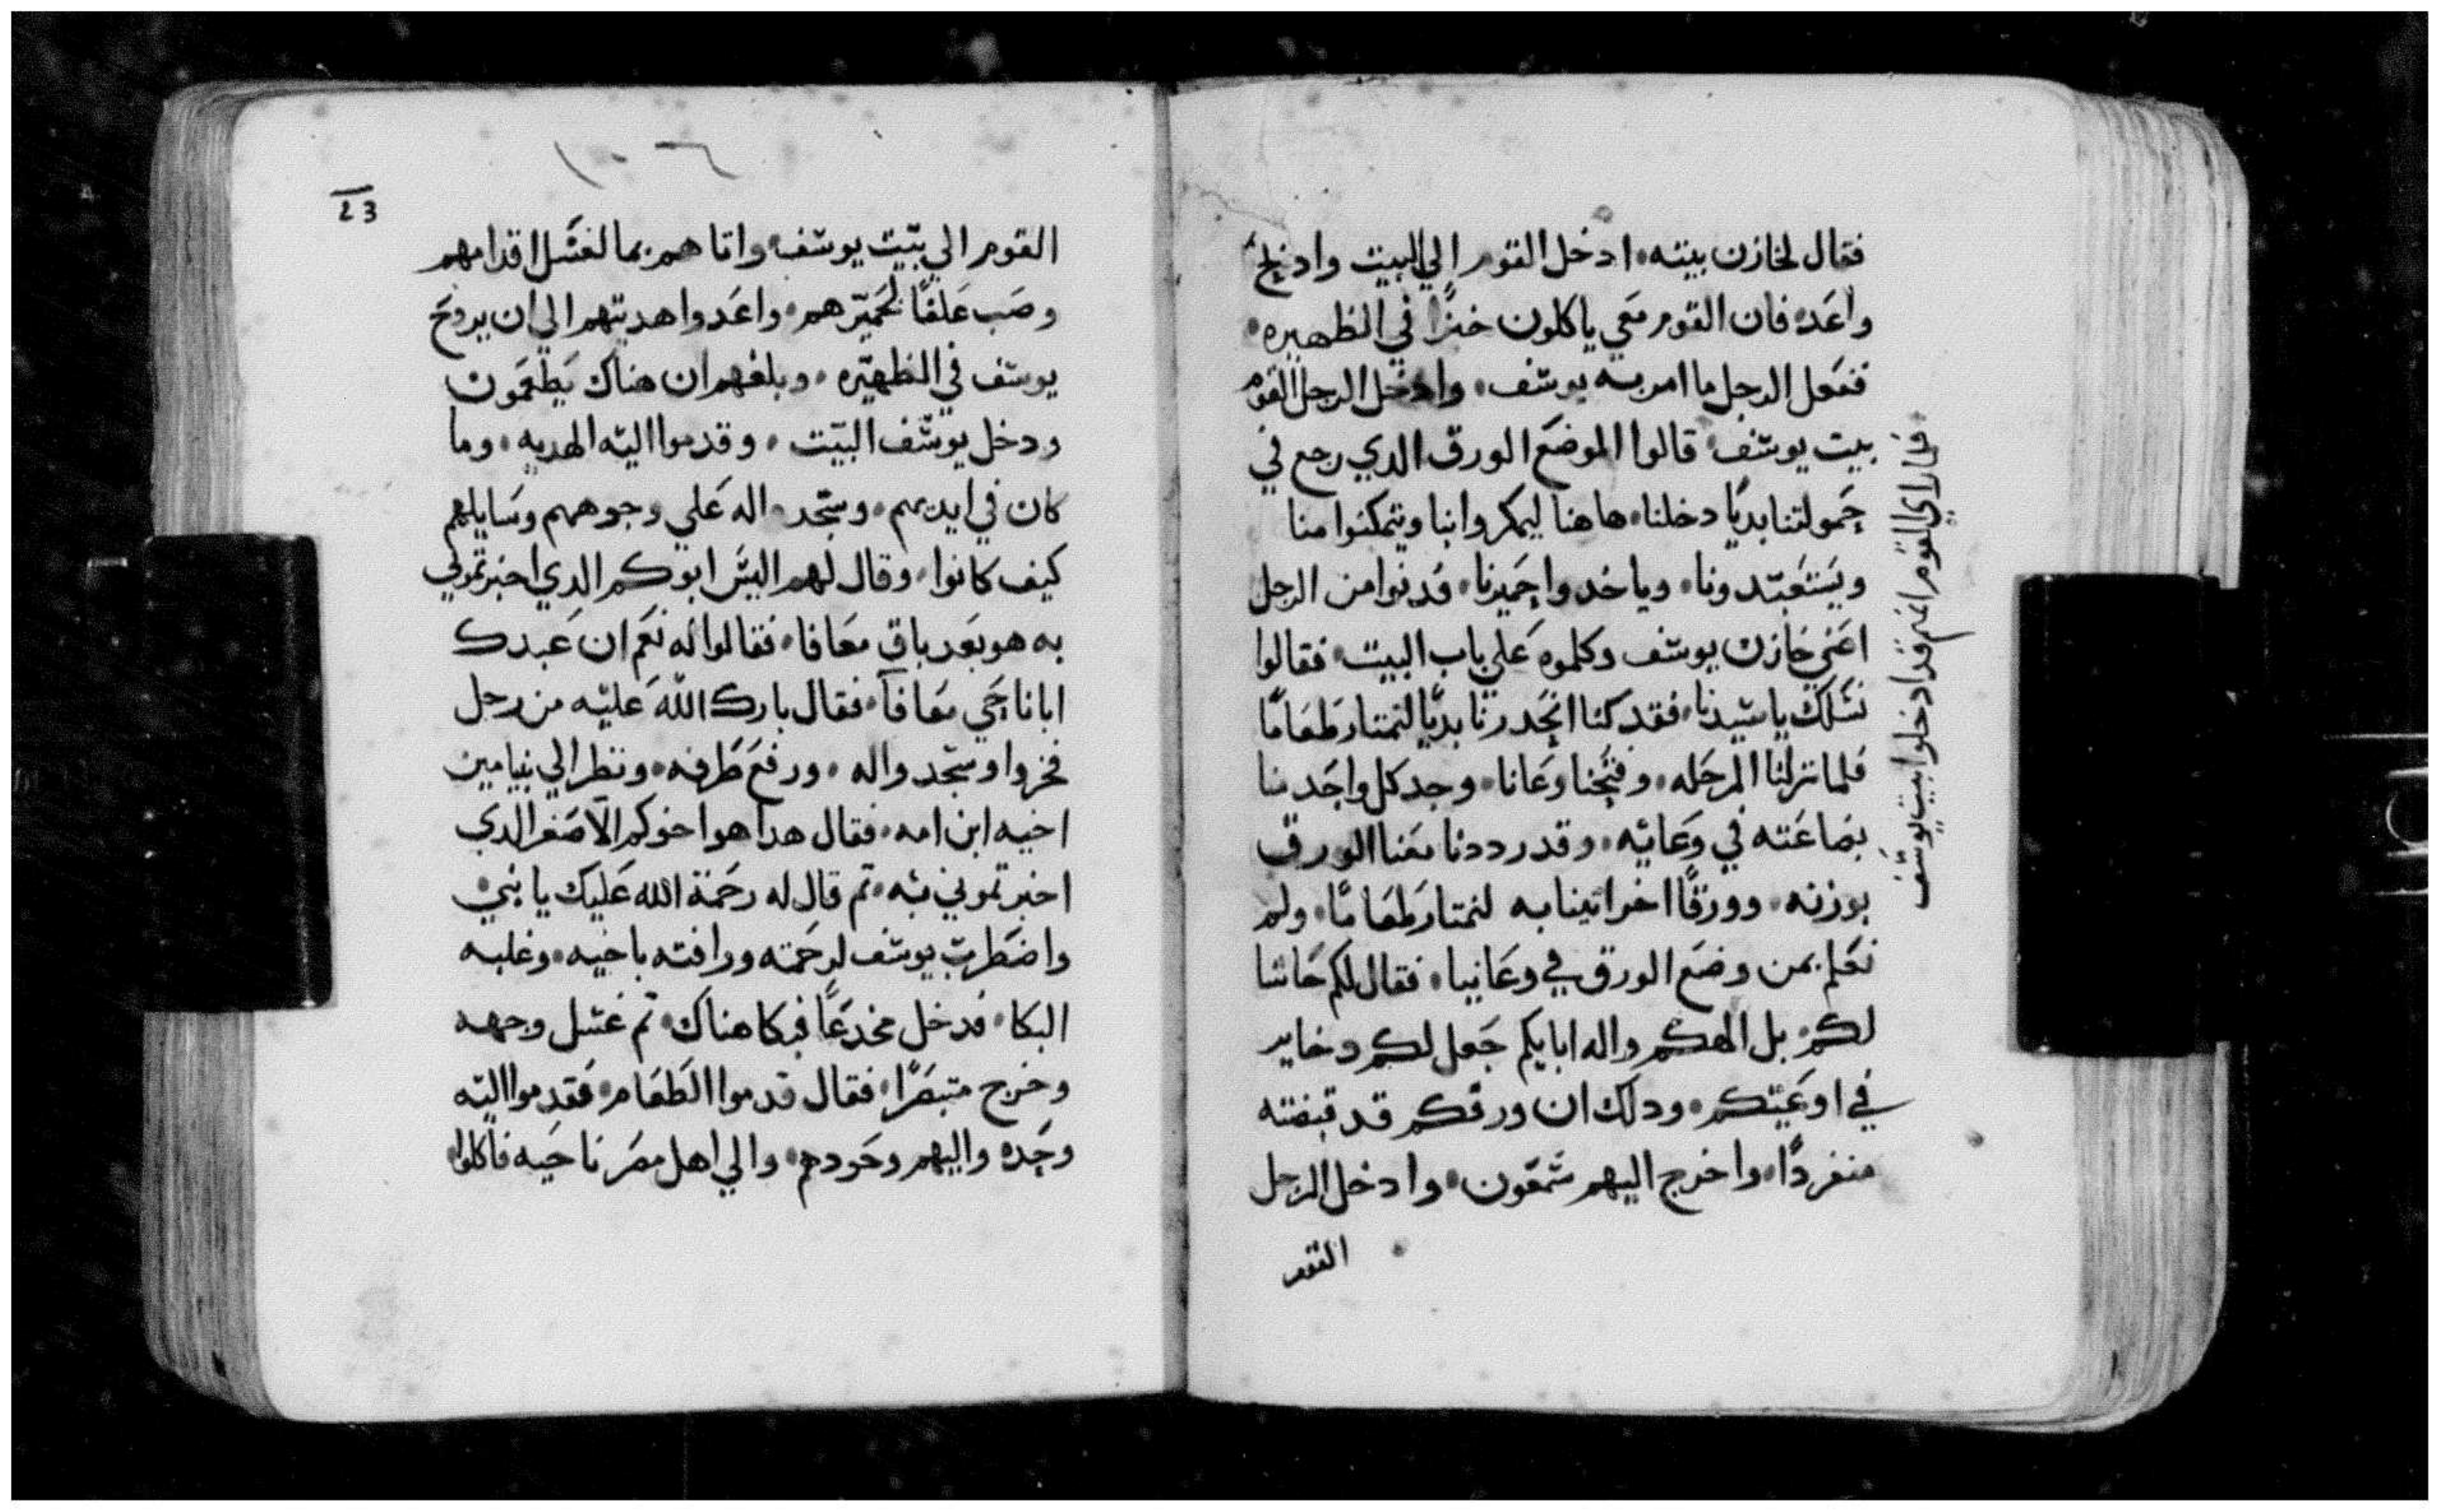 فقال لخازن بيته، ادخل القوم الي البيت وادبح
واعَده فان القوم معَي ياكلون خبزًا في الظهيره،
ففعَل الرجل ما امر به يوسف، وادخل الرجل القوم
بيت يوسف قالوا الموضعَ الورق الدي رجع في
حَمولتنا بديًا دخلنا، هاهنا ليمكروا بنا ويتمكنوا منا
ويستعَبدونا، وياخدوا حَميرنا، فدنوا من الرجل
اعَني خازن يوسف وكلموه عَلي باب البيت، فقالوا
نسَلك يا سيدنا، فقد كنا انحَدرنا بديًا لنمتار طعَامًا
فلما نزلنا المرحَله، وفتحَنا وعَانا، وجد كل واحَد منا
بضاعَته في وعَائه، وقد رددنا معَنا الورق
بوزنه، وورقًا اخر اتينا به لنمتار طعَامًا، ولم
نعَلم بمن وضعَ الورق في وعَانيا، فقال لكم حَاشا
لكم، بل الهكم واله ابايكم جَعل لكم دخاير
في اوعَيتكم، ودلك ان ورقكم قد قبضته
منفردًا، واخرج اليهم شمعَون، وادخل الرجل
القوم
فلما راي القوم انهم قد ادخلوا بيت يوسف
١٠٦
23
القوم الي بيت يوسف، واتاهم بما لغسَل اقدامهم
وصَب عَلفًا لحَميرهم، واعَدوا هديتهم الي ان يروحَ
يوسف في الظهيره، وبلغهم ان هناك يَطعَمَون
ودخل يوسف البيت، وقدموا اليه الهديه، وما
كان في ايديهم، وسَجد اله عَلي وجوههم وسَايلهم
كيف كانوا، وقال لهم اليسَ ابوكم الدي اخبرتموني
به هو بعَد باق معَافا، فقالوا له نعَم ان عَبدك
ابانا حَي معَافا، فقال بارك الله عَليه من رجل
فخروا وسَجدوا له، ورفعَ طَرفه، ونظر الي بنيامين
اخيه ابن امه، فقال هدا هو اخوكم الاصَغر الدي
اخبرتموني به، تم قال له رحَمة الله عَليك يا بني
واضطرب يوسف لرحَمته ورافته باخيه، وغلبه
البكا، فدخل مخدعًا فبكا هناك، تم غسَل وجهه
وخرج متبصَرًا، فقال قدموا الطَعَام، فَقدموا اليه
وحَده واليهم وحَودهم، والي اهل مصَر ناحَيه فاكلوا